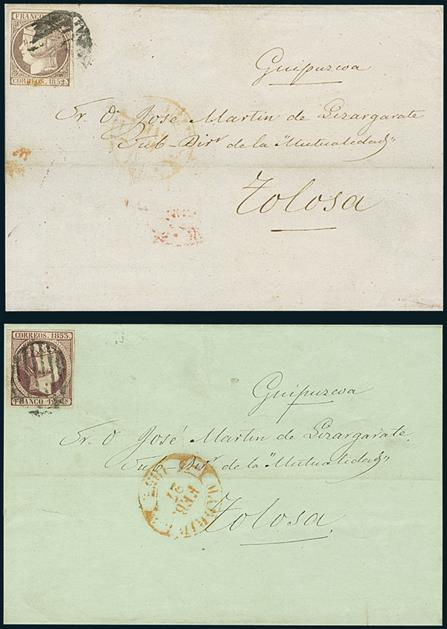 FRANCO
CORREOS. 185
Guipuzcoa
Sr. D. José Martin de Lizargarate
Sub-Dir.r de la "Mutualidad"
Tolosa
CORREOS. 1853
FRANCO
Guipuzcoa
Sr. D. José Martin de Lizargarate.
Sub-Dir.r de la "Mutualidad"
Tolosa.
MADRID
27
FEB.